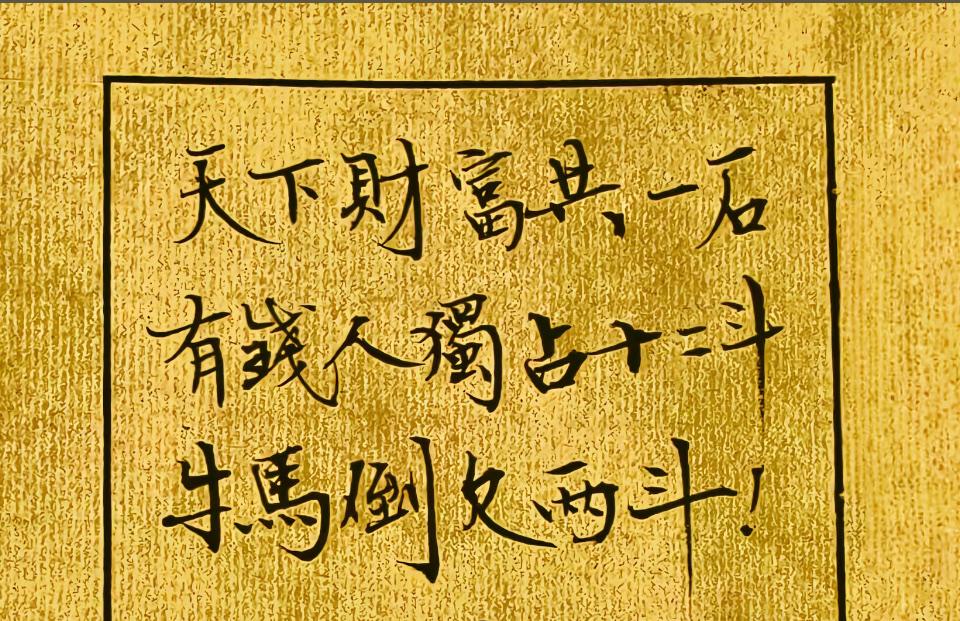 天下財富共一石
有錢人獨占十二斗
牛馬倒欠兩斗！